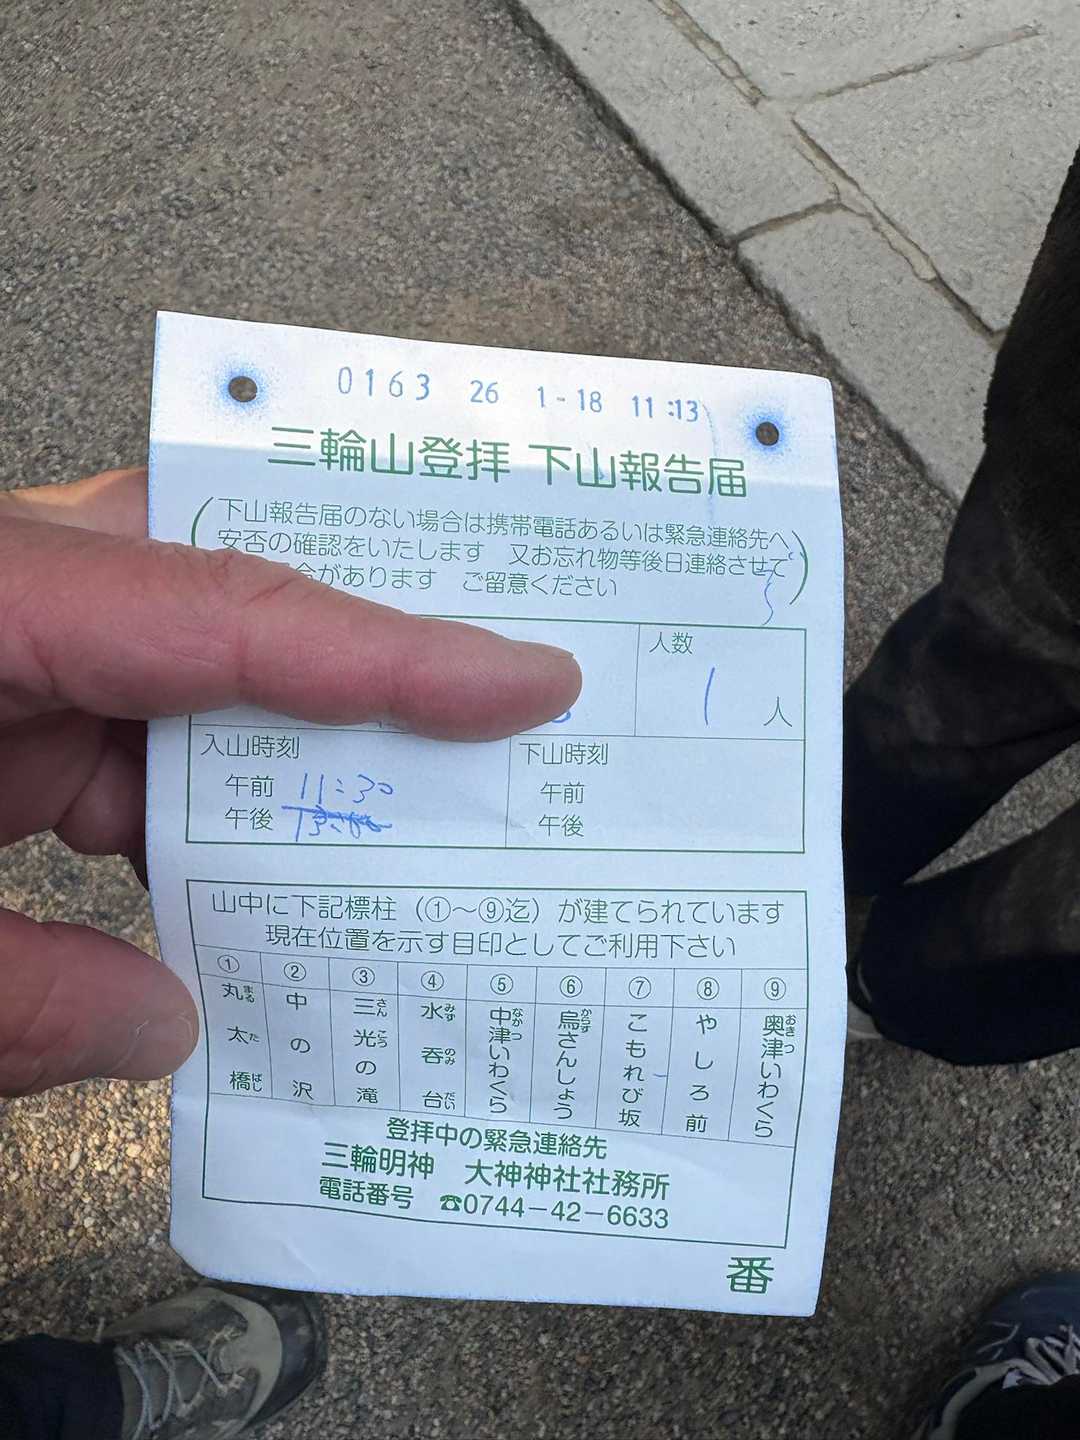 0163 26 1-18 11:13
三輪山登拝 下山報告届
下山報告届のない場合は携帯電話あるいは緊急連絡先へ
安否の確認をいたします 又お忘れ物等後日連絡させて
があります ご留意ください
人数
1 人
入山時刻
午前 11:30
午後
下山時刻
午前
午後
山中に下記標柱(①〜⑨迄)が建てられています
現在位置を示す目印としてご利用下さい
① 丸太橋 まるたばし
② 中の沢
③ 三光の滝 さんこう
④ 水呑台 みずのみだい
⑤ 中津いわくら なかつ
⑥ 烏さんしょう からす
⑦ こもれび坂
⑧ やしろ前
⑨ 奥津いわくら おきつ
登拝中の緊急連絡先
三輪明神 大神神社社務所
電話番号 ☎0744-42-6633
番